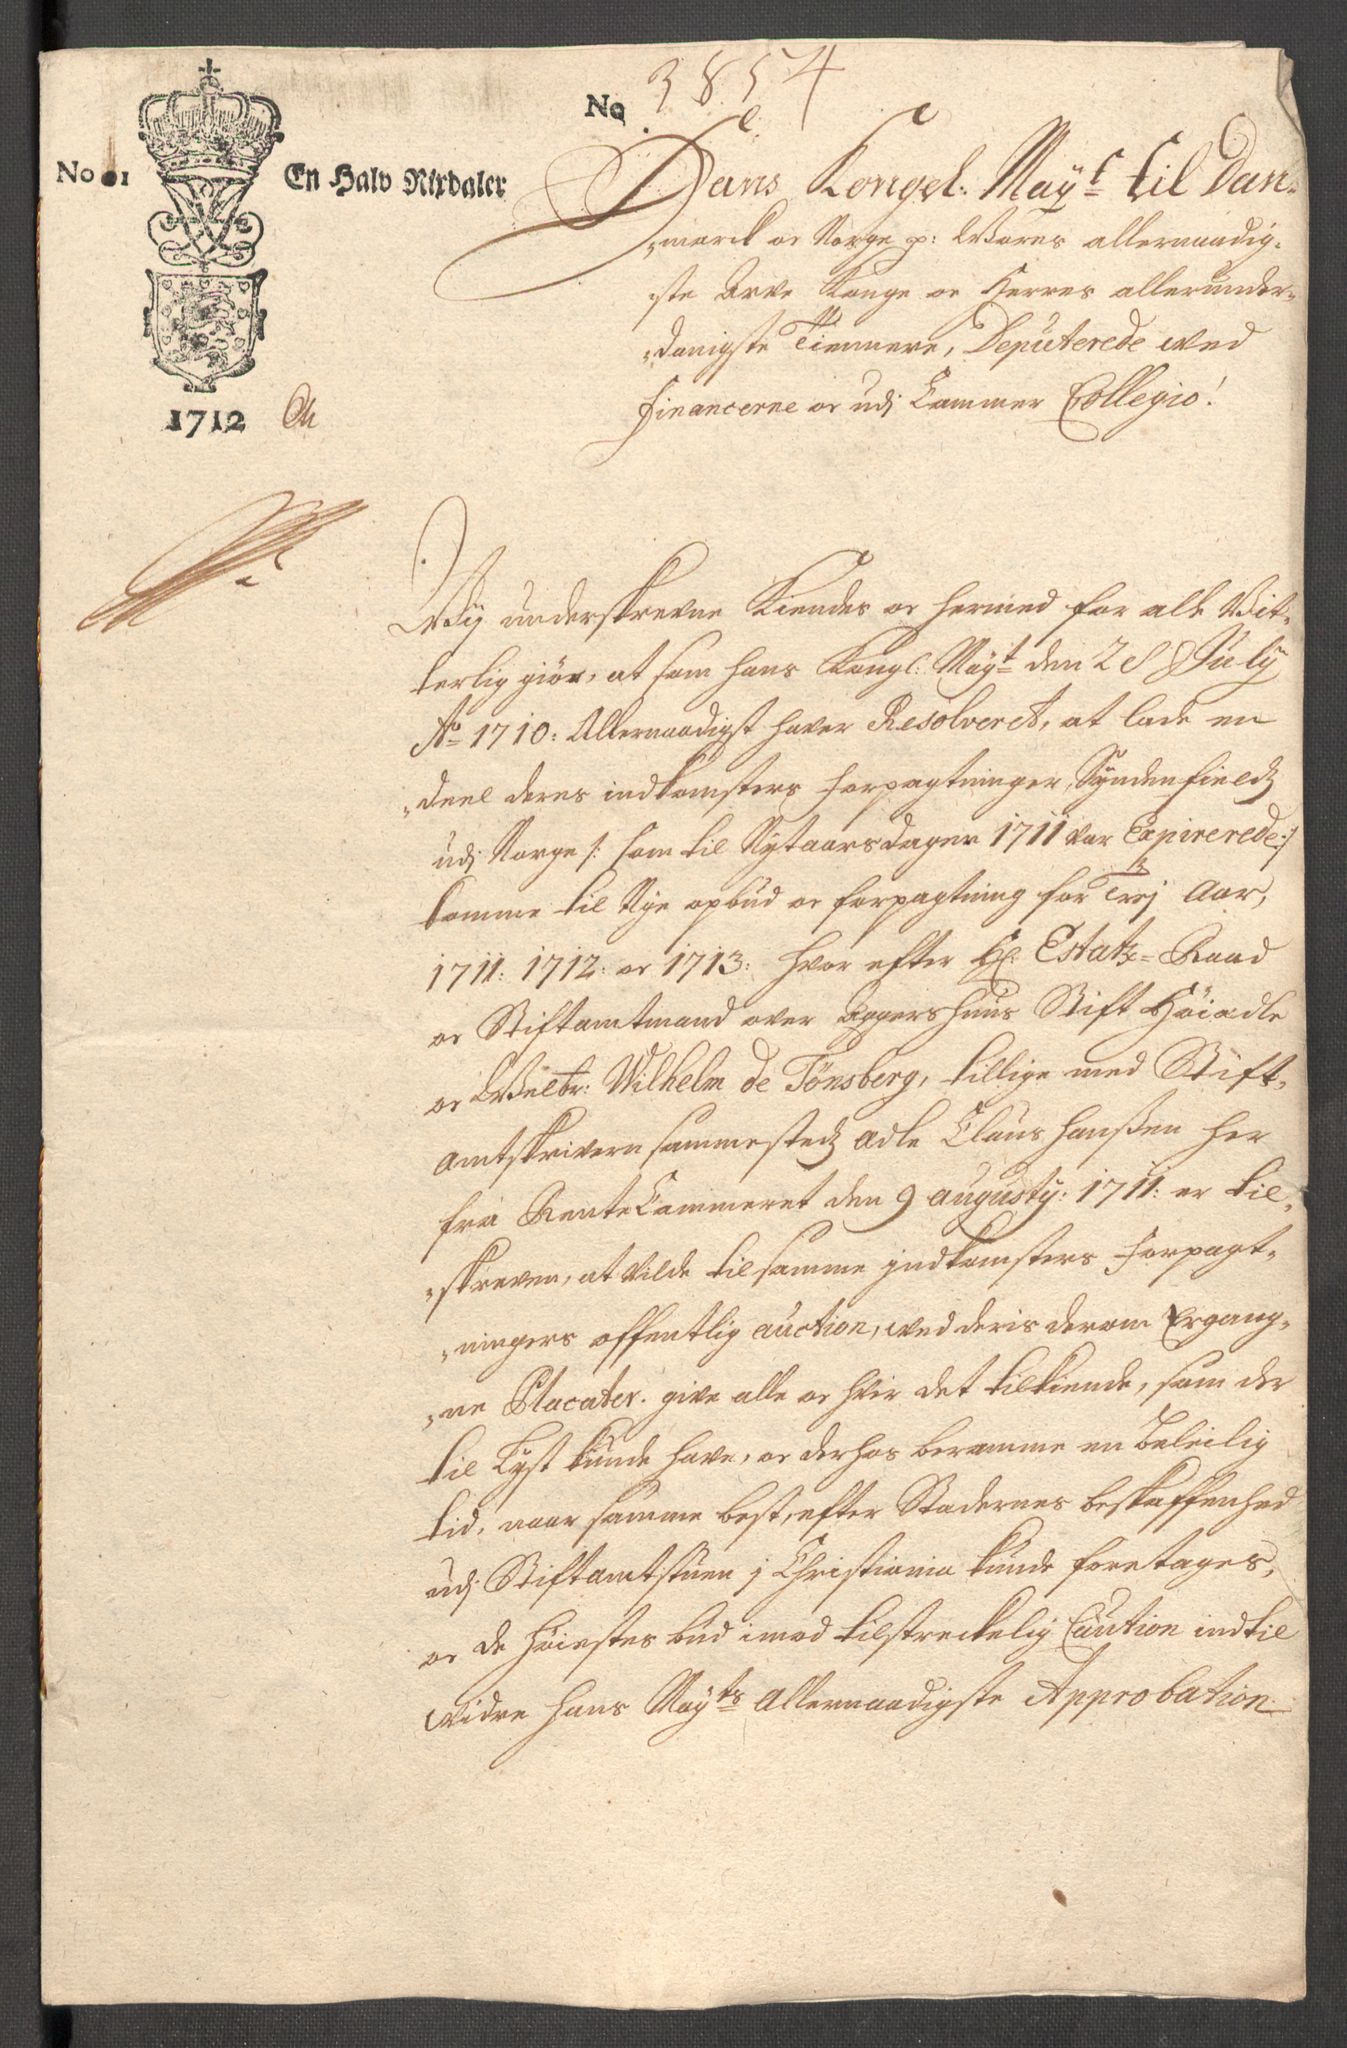 No 3854
No 21
En Halv Rixdaler
1712
Hans Kongel: Mayt til Dan-
marck oc Norge p: Wores allernaadig-
ste Arve Konge oc Herres allerunder-
danigste Tiennere, Deputerede wed
Financerne oc udj Cammer Collegio!
Wij underskrevne Kiendes oc hermed for alle Wit-
terlig giör, at som hans Kongl: Mayt den 28 July
Ao 1710: Allernaadigst haver Resolveret, at lade en
deel deres indkomsters forpagtninger, Syndenfieldz
udj Norge /: som til Nytaarsdagen 1711 var Expirerede :/
komme til Nye opbud oc forpagtning for Trej Aar,
1711: 1712: oc 1713: hvor efter Hr: Estatz-Raad
oc Stiftamtmand over Aggershuus Stift Höiædle
oc Welbr: Wilhelm de Tönsberg, tillige med Stift-
amtskrivern sammestedz Ædle Claus Hanßen her
fra Rente Cammeret den 9 augusty: 1711: er til-
skreven, at vilde til samme jndkomsters forpagt-
ningers offentlig auction, wed deris derom Ergang-
ne Placater. give alle oc hvir det tilkiende, som der
til Lyst kunde have, oc derhos beramme en beleilig
tid, naar samme best, efter Stædernes beskaffenhed
udj Stiftamtstuen j Christiania kunde foretages,
oc de höiestes bud imod tilstreckelig Caution indtil
widre hans Mayts Allernaadigste Approbation